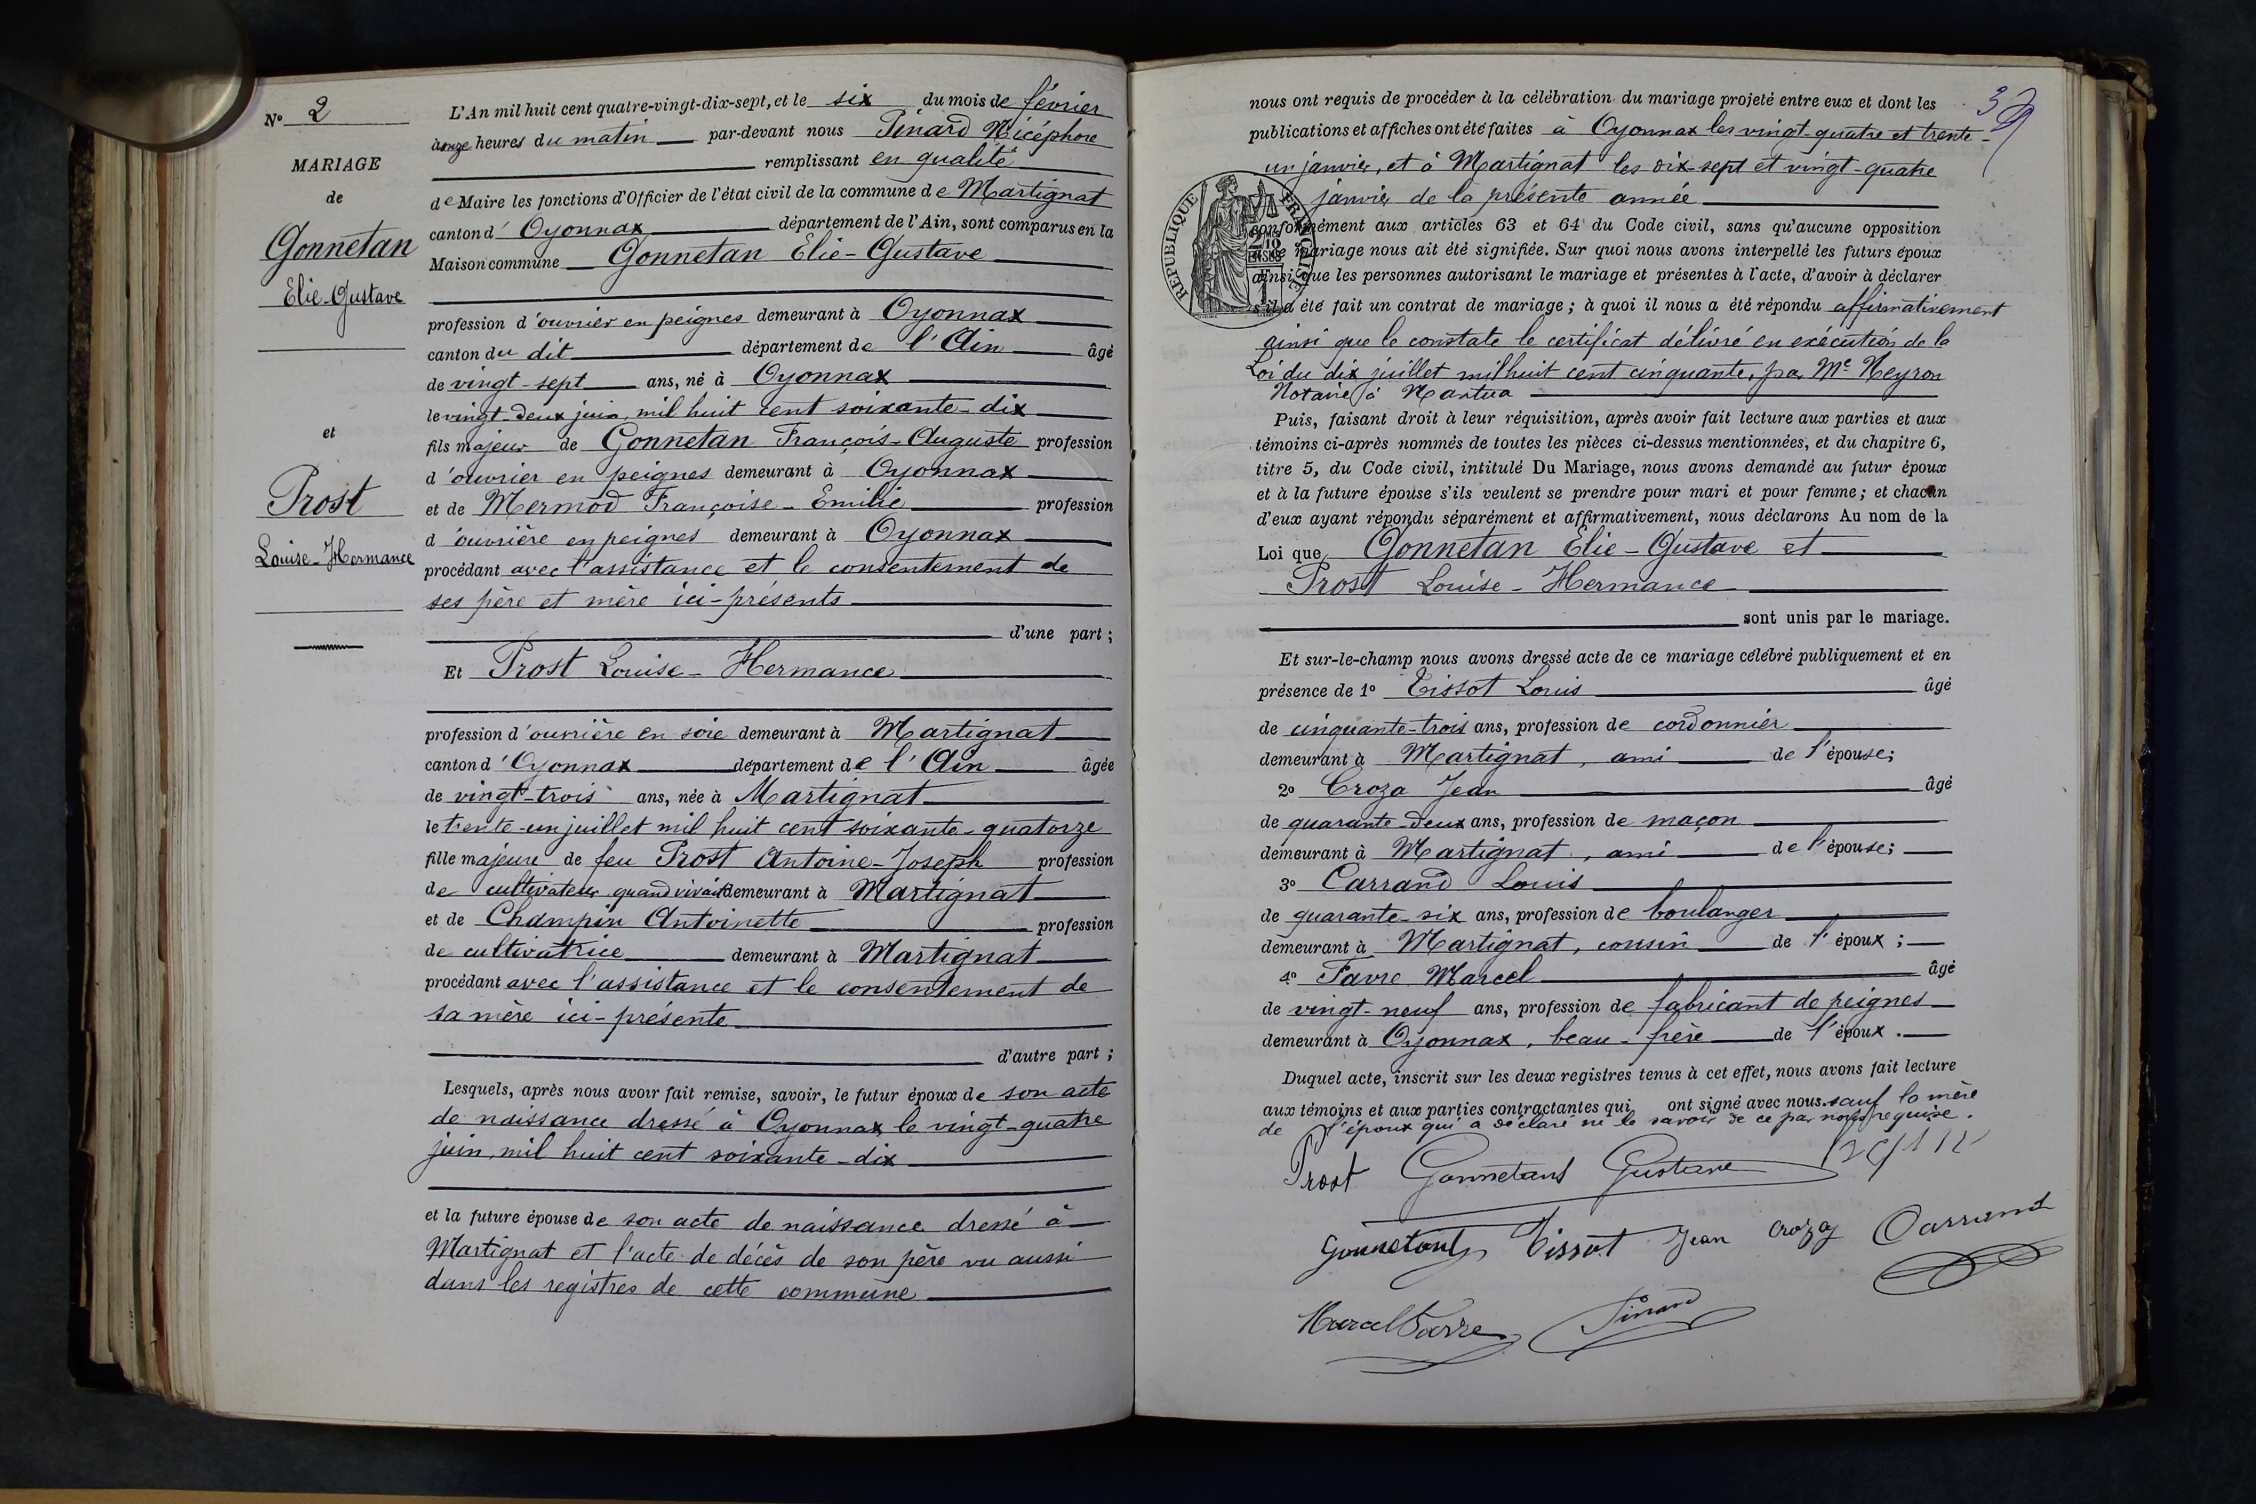 N° 2
MARIAGE
de
Gonnetan
Elie-Gustave
et
Prost
Louise-Hermance
L'An mil huit cent quatre-vingt-dix-sept, et le six du mois de février
à onze heures du matin par-devant nous Pinard Nicéphore
remplissant en qualité
de Maire les fonctions d'Officier de l'état civil de la commune de Martignat
canton d' Oyonnax département de l'Ain, sont comparus en la
Maison commune Gonnetan Elie-Gustave
profession d'ouvrier en peignes demeurant à Oyonnax
canton du dit département de l'Ain âgé
de vingt-sept ans, né à Oyonnax
le vingt-deux juin, mil huit cent soixante-dix
fils majeur de Gonnetan François-Auguste profession
d'ouvrier en peignes demeurant à Oyonnax
et de Mermod Françoise-Emilie profession
d'ouvrière en peignes demeurant à Oyonnax
procédant avec l'assistance et le consentement de
ses père et mère ici-présents
d'une part ;
Et Prost Louise-Hermance
profession d'ouvrière en soie demeurant à Martignat
canton d'Oyonnax département de l'Ain âgée
de vingt-trois ans, née à Martignat
le trente-un juillet mil huit cent soixante-quatorze
fille majeure de feu Prost Antoine-Joseph profession
de cultivateur quand vivait demeurant à Martignat
et de Champin Antoinette profession
de cultivatrice demeurant à Martignat
procédant avec l'assistance et le consentement de
sa mère ici-présente
d'autre part ;
Lesquels, après nous avoir fait remise, savoir, le futur époux de son acte
de naissance dressé à Oyonnax le vingt-quatre
juin, mil huit cent soixante-dix
et la future épouse de son acte de naissance dressé à
Martignat et l'acte de décès de son père vu aussi
dans les registres de cette commune
3
nous ont requis de procéder à la célébration du mariage projeté entre eux et dont les
publications et affiches ont été faites à Oyonnax les vingt-quatre et trente-
un janvier, et à Martignat les dix-sept et vingt-quatre
janvier de la présente année
RÉPUBLIQUE FRANÇAISE
conformément aux articles 63 et 64 du Code civil, sans qu'aucune opposition
à ce mariage nous ait été signifiée. Sur quoi nous avons interpellé les futurs époux
ainsi que les personnes autorisant le mariage et présentes à l'acte, d'avoir à déclarer
s'il a été fait un contrat de mariage ; à quoi il nous a été répondu affirmativement
ainsi que le constate le certificat délivré en exécution de la
Loi du dix juillet mil huit cent cinquante, par Me Neyron
Notaire à Nantua
Puis, faisant droit à leur réquisition, après avoir fait lecture aux parties et aux
témoins ci-après nommés de toutes les pièces ci-dessus mentionnées, et du chapitre 6,
titre 5, du Code civil, intitulé Du Mariage, nous avons demandé au futur époux
et à la future épouse s'ils veulent se prendre pour mari et pour femme ; et chacun
d'eux ayant répondu séparément et affirmativement, nous déclarons Au nom de la
Loi que Gonnetan Elie-Gustave et
Prost Louise-Hermance
sont unis par le mariage.
Et sur-le-champ nous avons dressé acte de ce mariage célébré publiquement et en
présence de 1° Tissot Louis âgé
de cinquante-trois ans, profession de cordonnier
demeurant à Martignat, ami de l'épouse ;
2° Croza Jean âgé
de quarante-deux ans, profession de maçon
demeurant à Martignat, ami de l'épouse ;
3° Carrand Louis
de quarante-six ans, profession de boulanger
demeurant à Martignat, cousin de l'époux ;
4° Favre Marcel âgé
de vingt-neuf ans, profession de fabricant de peignes
demeurant à Oyonnax, beau-frère de l'époux.
Duquel acte, inscrit sur les deux registres tenus à cet effet, nous avons fait lecture
aux témoins et aux parties contractantes qui ont signé avec nous sauf la mère
de l'époux qui a déclaré ne le savoir de ce par nous requise.
Prost Gonnetand Gustave
Gonnetand Tissot Jean Croza Carrand
Marcel Favre Pinard